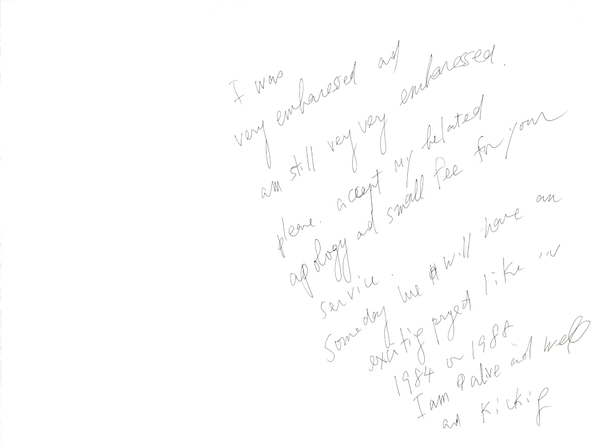 I was
very embaressed ad
am still very very embaressed.
please. accept my belated
apology ad small fee for your
service.
Someday we will have an
exciting project like in
1984 or 1988
I am alive ad well
ad kicking